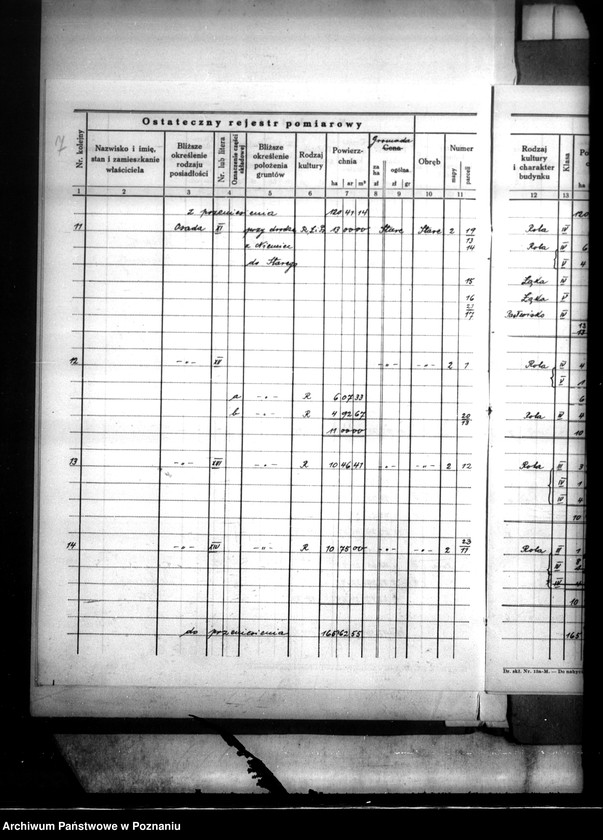 Ostateczny rejestr pomiarowy
Nr. kolejny
Nazwisko i imię, stan i zamieszkanie właściciela
Bliższe określenie rodzaju posiadłości
Nr. lub litera
Oznaczenie części składowej
Bliższe określenie położenia gruntów
Rodzaj kultury
Powierzchnia
ha ar m²
Gromada
Cena
za ha zł
ogólna zł gr
Obręb
Numer
mapy parceli
Rodzaj kultury i charakter budynku
Klasa
ha
1 2 3 4 5 6 7 8 9 10 11 12 13
z przeniesienia 120 41 14
11 Osada XI przy drodze R. Ł. P. 13 00 00 Stare Stare 2 19 Rola IV
z Niemiec 13 14 Rola IV 6
do Starego V 4
15 Łąka IV
16 Łąka V
21 17 Pastwisko IV
12 -„- XII -„- -„- 2 1 Rola IV 4
V 1
a -„- R 6 07 33 6
b -„- R 4 92 67 20 18 Rola 4
11 00 00 10
13 -„- XIII -„- R 10 46 41 -„- -„- 2 12 Rola III 3
IV 1
IV 4
10
14 -„- XIV -„- R 10 75 00 -„- -„- 2 23 11 Rola II 1
III
IV
10
do przeniesienia 165 62 55 165
Dr. skł. Nr. 13a-M. — Do nabycia
Archiwum Państwowe w Poznaniu